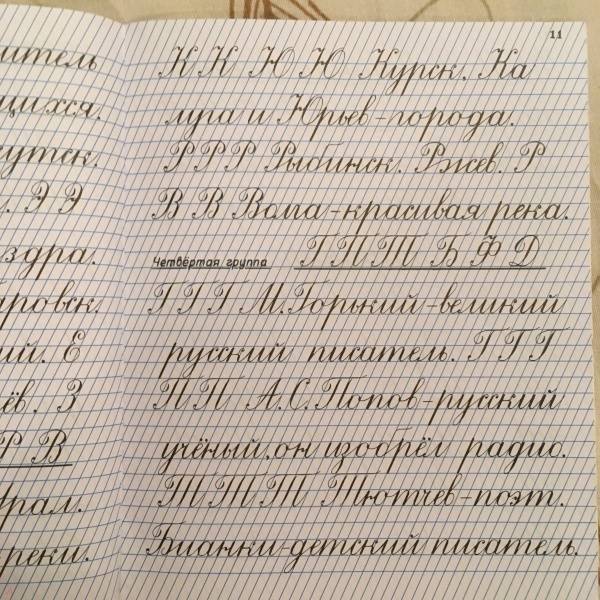 11
итель
щихся.
кутск.
. Э Э
здра.
ровск.
ий. Е
ёв. З
Р В
рал.
реки.
К К Ю Ю Курск. Ка
луга и Юрьев-города.
Р Р Р Рыбинск. Ржев. Р
В В Волга-красивая река.
Четвёртая группа Г П Т Б Ф Д
Г Г Г М.Горький-великий
русский писатель. Г Г Г
П П А.С.Попов-русский
учёный,он изобрёл радио.
Т Т Т Тютчев-поэт.
Бианки-детский писатель.